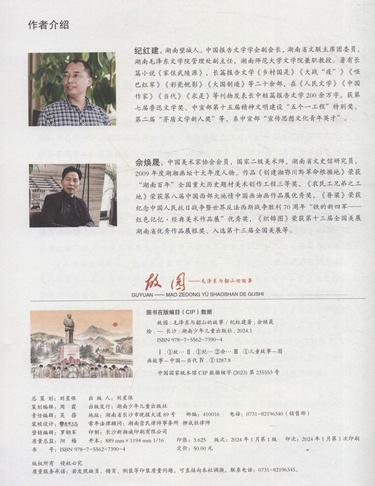 作者介绍
纪红建，湖南望城人。中国报告文学学会副会长，湖南省文联主席团委员，
湖南毛泽东文学院管理处副主任，湖南师范大学文学院兼职教授。著有长
篇小说《家住武陵源》，长篇报告文学《乡村国是》《大战“疫”》《哑
巴红军》《彩瓷帆影》《大国制造》等二十余部，在《人民文学》《中国
作家》《当代》《求是》等刊物发表长中短篇报告文学200余万字。获第
七届鲁迅文学奖、中宣部第十五届精神文明建设“五个一工程”特别奖、
第二届“茅盾文学新人奖”等，系中宣部“宣传思想文化青年英才”。
佘焕晟，中国美术家协会会员，国家二级美术师，湖南省文史馆研究员，
2009年度湖湘画坛十大年度人物。作品《创建湘鄂川黔革命根据地》荣获
“湖南百年”全国重大历史题材美术创作工程三等奖，《农民工兄弟之工
地》荣获第八届中国西部大地情中国画油画作品展优秀奖，《脊梁》荣获
纪念中国人民抗日战争暨世界反法西斯战争胜利70周年“铁的新四军——
红色记忆·经典美术作品展”优秀奖，《织锦图》荣获第十三届全国美展
湖南省优秀作品展银奖、入选第十三届全国美展等。
故园——毛泽东与韶山的故事
GUYUAN —— MAO ZEDONG YU SHAOSHAN DE GUSHI
图书在版编目（CIP）数据
故园：毛泽东与韶山的故事 / 纪红建著；佘焕晟
绘. — 长沙：湖南少年儿童出版社，2024.1
ISBN 978-7-5562-7390-4
Ⅰ. ①故… Ⅱ. ①纪… ②佘… Ⅲ. ①儿童故事－图
画故事－中国－当代 Ⅳ. ①I287.8
中国国家版本馆CIP数据核字(2023)第235553号
总 策 划：刘星保 出 版 人：刘星保
策划编辑：周 霞 出版发行：湖南少年儿童出版社
责任编辑：吴 蓓 地 址：湖南省长沙市晚报大道89号 邮编：410016 电话：0731-82196340（销售部）
常年法律顾问：湖南崇民律师事务所 柳成柱律师
营销编辑：罗钢军 印制：长沙新湘诚印刷有限公司
质量总监：阳 梅 开本：889 mm×1194 mm 1/16 印张：5.625 版次：2024年1月第1版 印次：2024年1月第1次印刷
书 号：ISBN 978-7-5562-7390-4 定价：50.00元
版权所有 侵权必究
质量服务承诺：若发现缺页、错页、倒装等印装质量问题，可直接向本社调换。联系电话：0731-82196345。